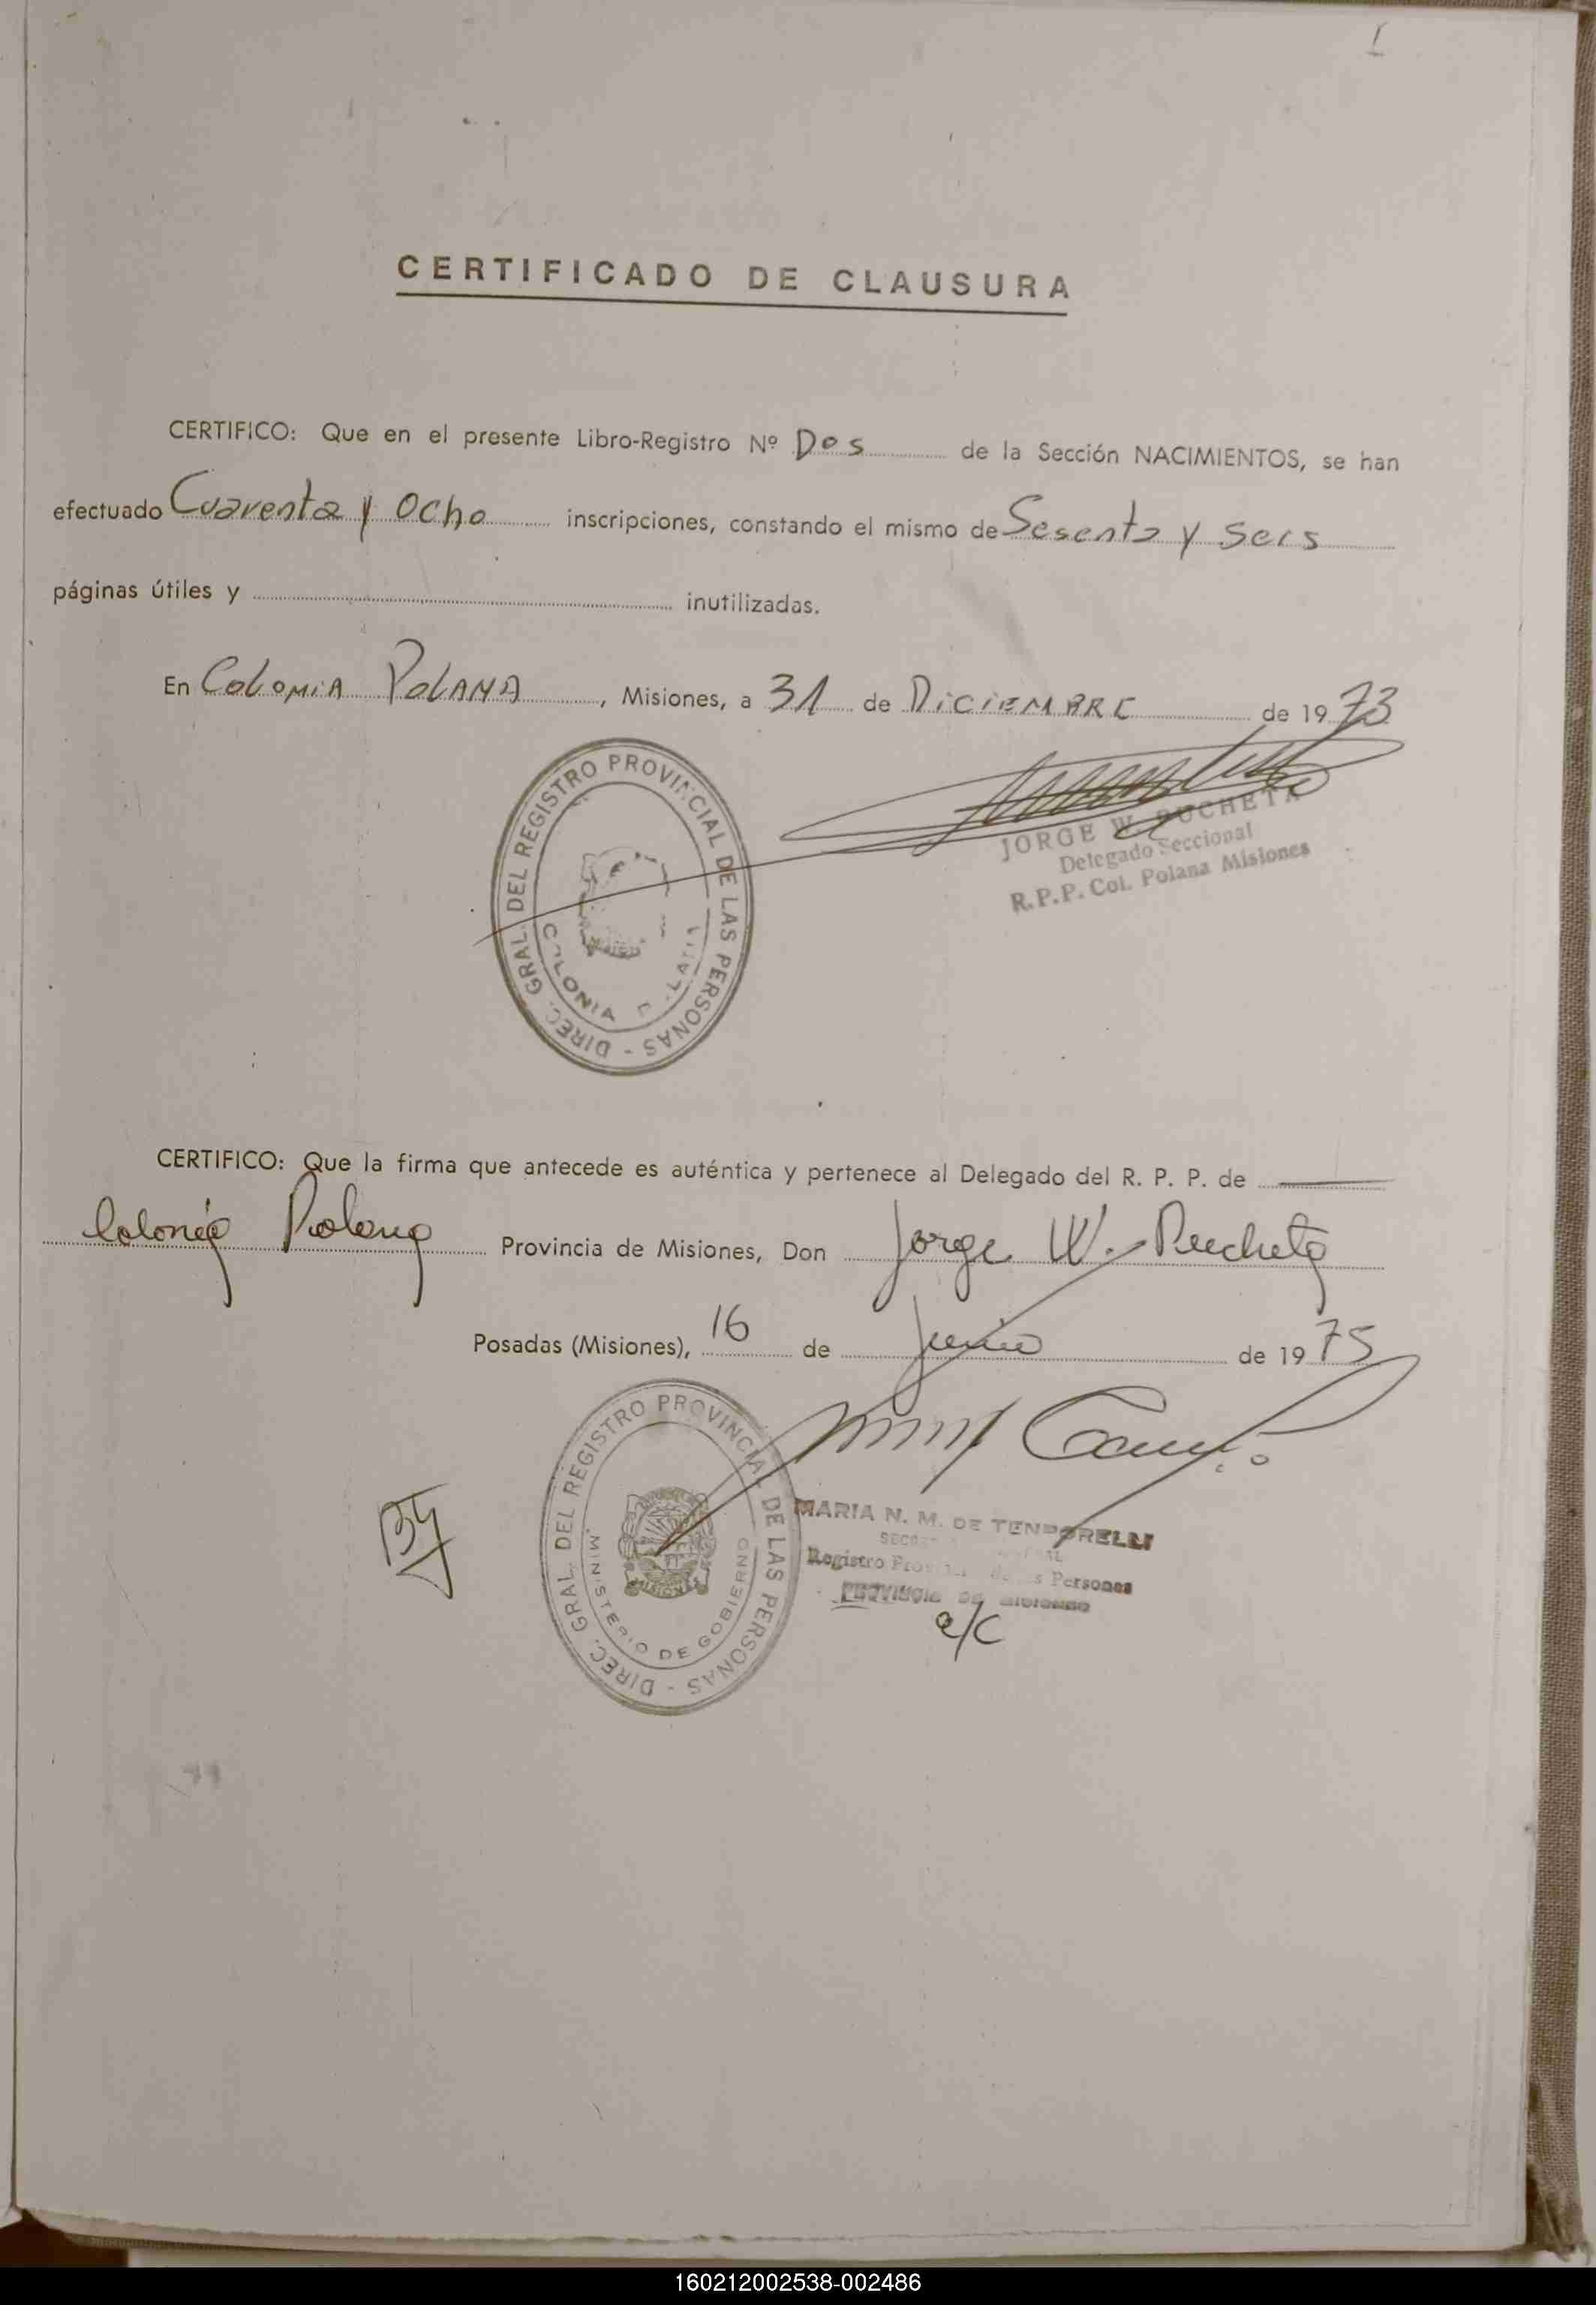 I
CERTIFICADO DE CLAUSURA
CERTIFICO: Que en el presente Libro-Registro Nº Dos de la Sección NACIMIENTOS, se han
efectuado Cuarenta y Ocho inscripciones, constando el mismo de Sesenta y seis
páginas útiles y inutilizadas.
En COLONIA POLANA, Misiones, a 31 de DICIEMBRE de 1973
DIREC. GRAL. DEL REGISTRO PROVINCIAL DE LAS PERSONAS -
COLONIA
JORGE W. PUCHETA
Delegado Seccional
R.P.P. Col. Polana Misiones
CERTIFICO: Que la firma que antecede es auténtica y pertenece al Delegado del R. P. P. de
Colonia Polana Provincia de Misiones, Don Jorge W. Pucheta
Posadas (Misiones), 16 de Junio de 1975
DIREC. GRAL. DEL REGISTRO PROVINCIAL DE LAS PERSONAS -
MINISTERIO DE GOBIERNO
MARIA N. M. DE TEMPORELLI
Registro Provincial de las Personas
PROVINCIA DE MISIONES
a/c
160212002538-002486